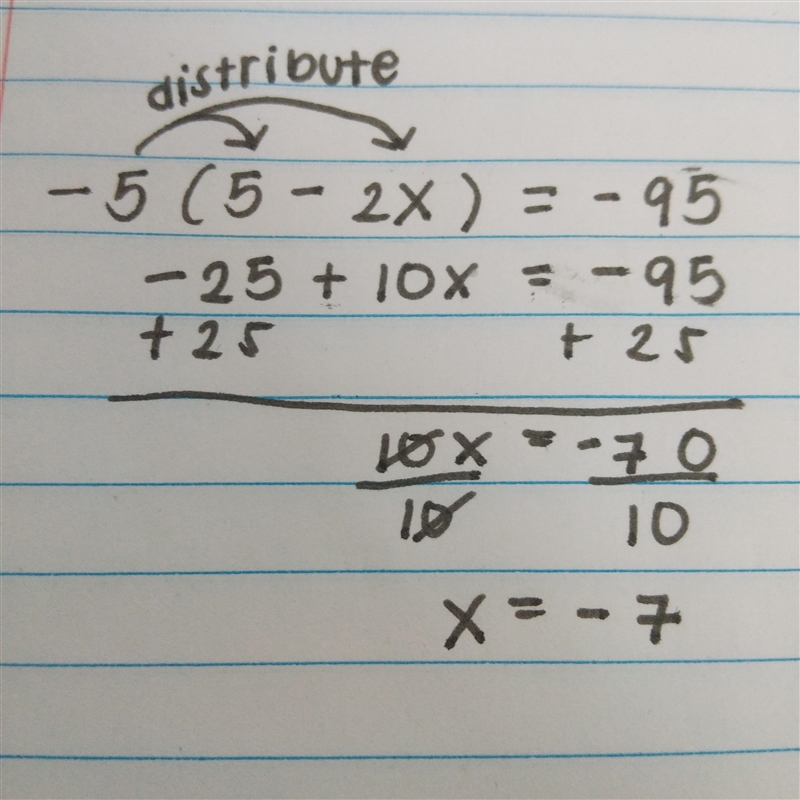 distribute
-5 (5 - 2x) = -95
-25 + 10x = -95
+25 + 25
10x = -70
10 10
x = -7